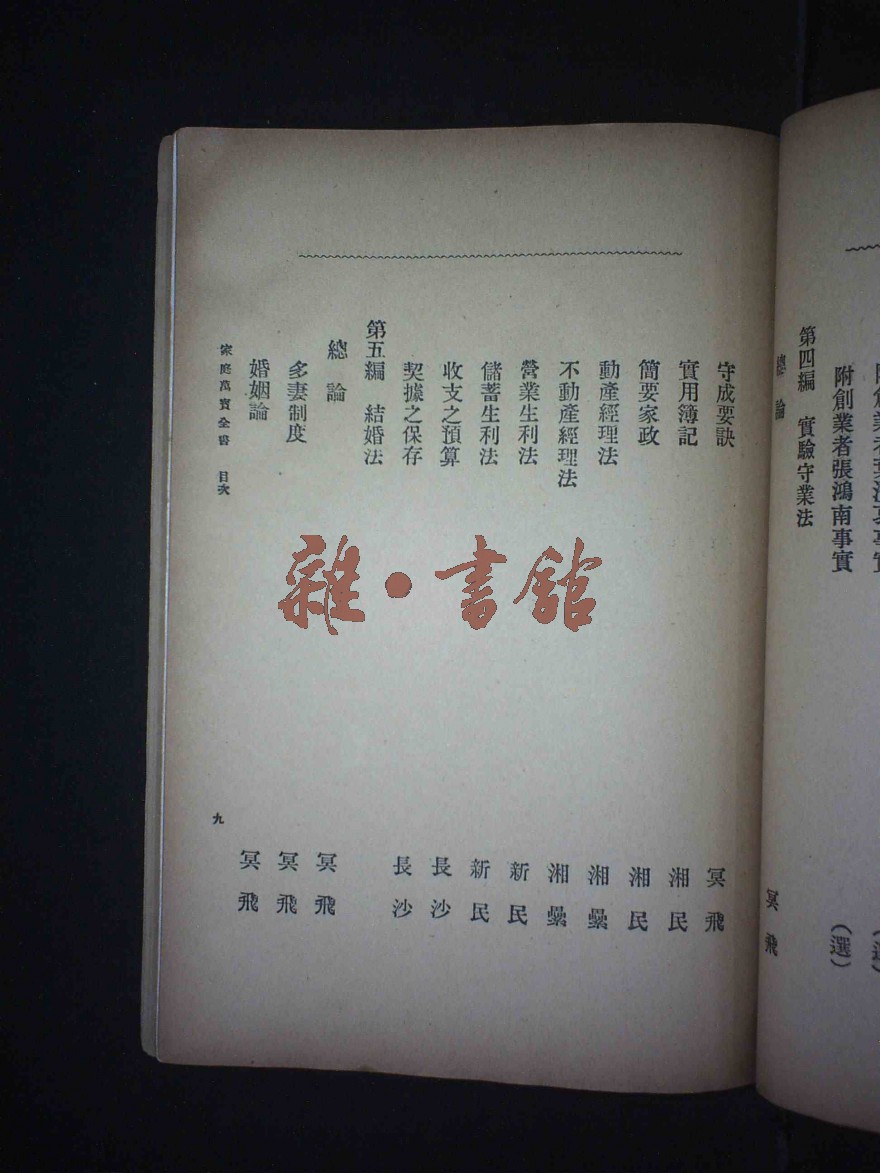 附創業者張鴻南事實 (選)
第四編 實驗守業法
總論 冥飛
守成要訣 冥飛
實用簿記 湘民
簡要家政 湘民
動產經理法 湘纍
不動產經理法 湘纍
營業生利法 新民
儲蓄生利法 新民
收支之預算 長沙
契據之保存 長沙
第五編 結婚法
總論 冥飛
多妻制度 冥飛
婚姻論 冥飛
家庭萬寶全書 目次 九
雜·書館